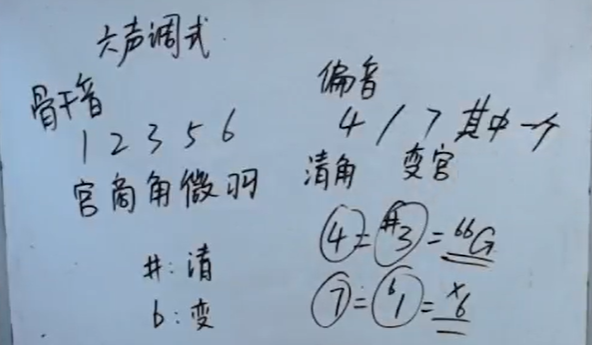 六声调式
骨干音
1 2 3 5 6
宫商角徵羽
#: 清
b: 变
偏音
4 / 7 其中一个
清角 变宫
4 = #3 = bbG
7 = b1 = x6